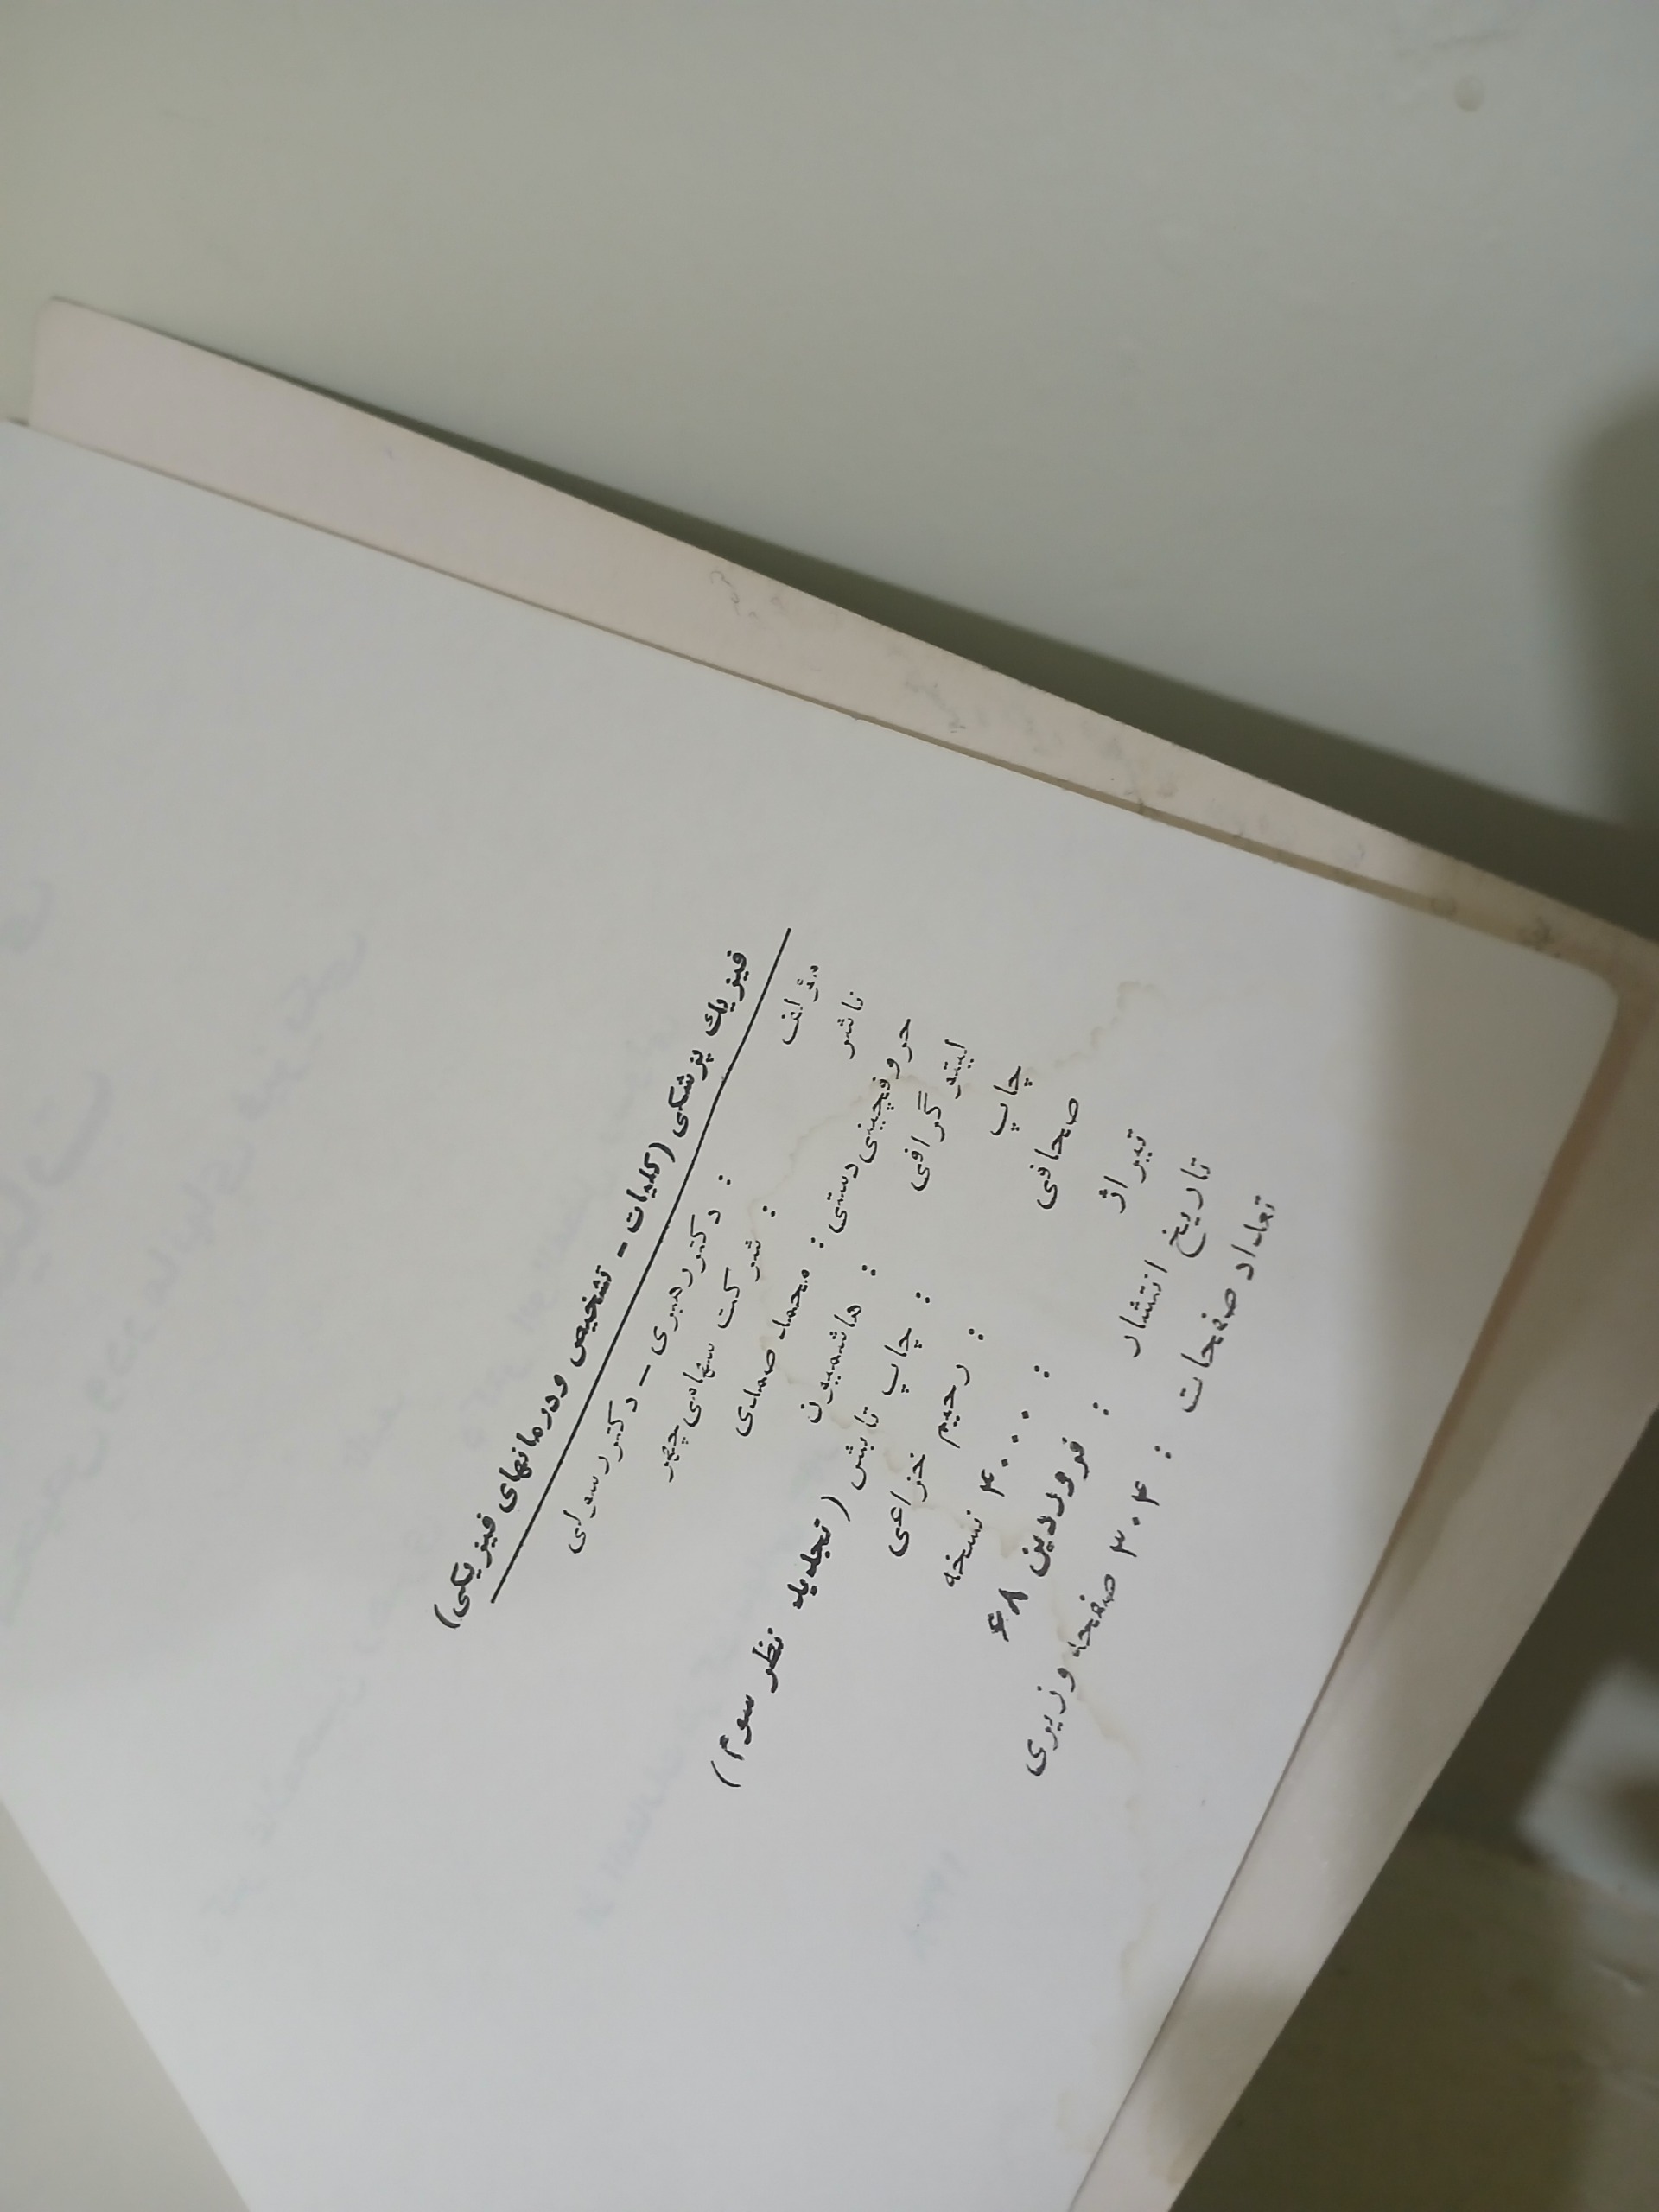 فیزیك پزشكی (كلیات - تشخیص ودرمانهای فیزیكی)
مؤلف : دكتوررهبری - دكتوررسولی
ناشر : شركت سهامی چهر
حروفچینی دستی : محمد صمدی
لیتوگرافی : هاشمیون
چاپ : چاپ تابش (تجدید نظر سوم)
صحافی : رحیم خزاعی
تیراژ : ۴۰۰۰ نسخه
تاریخ انتشار : فروردین ۶۸
تعداد صفحات : ۳۰۴ صفحه وزیری